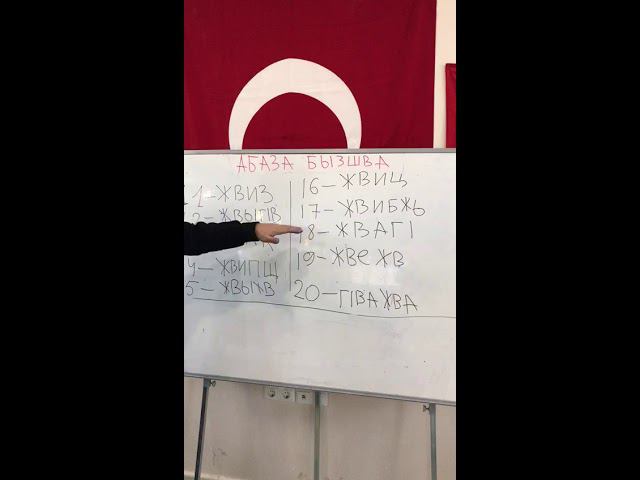 АБАЗА БЫЗШВА
11-ЖВИЗ
2-ЖВЫГIВ
4-ЖВИПЩ
5-ЖВЫЖВ
16-ЖВИЦ
17-ЖВИБЖЬ
18-ЖВАГI
19-ЖВЕЖВ
20-ГIВАЖВА